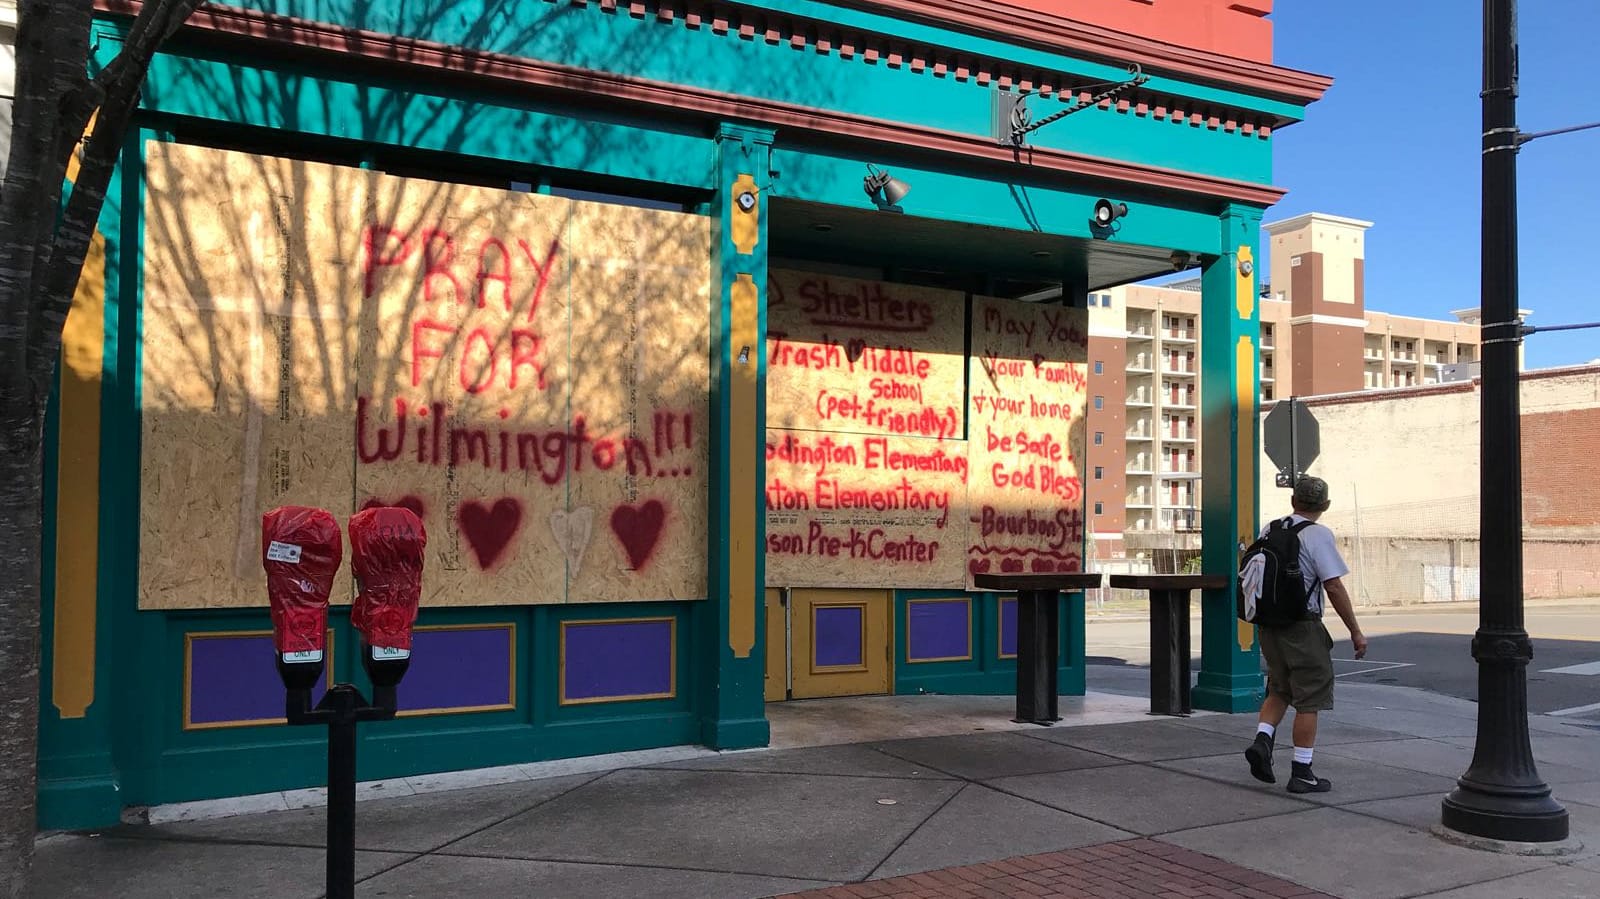 PRAY
FOR
Wilmington!!!
Shelters
Trash Middle
School
(pet-friendly)
dington Elementary
ton Elementary
son Pre-K Center
May You,
Your Family,
& your home
be Safe.
God Bless
-Bourbon St.
ONLY
ONLY